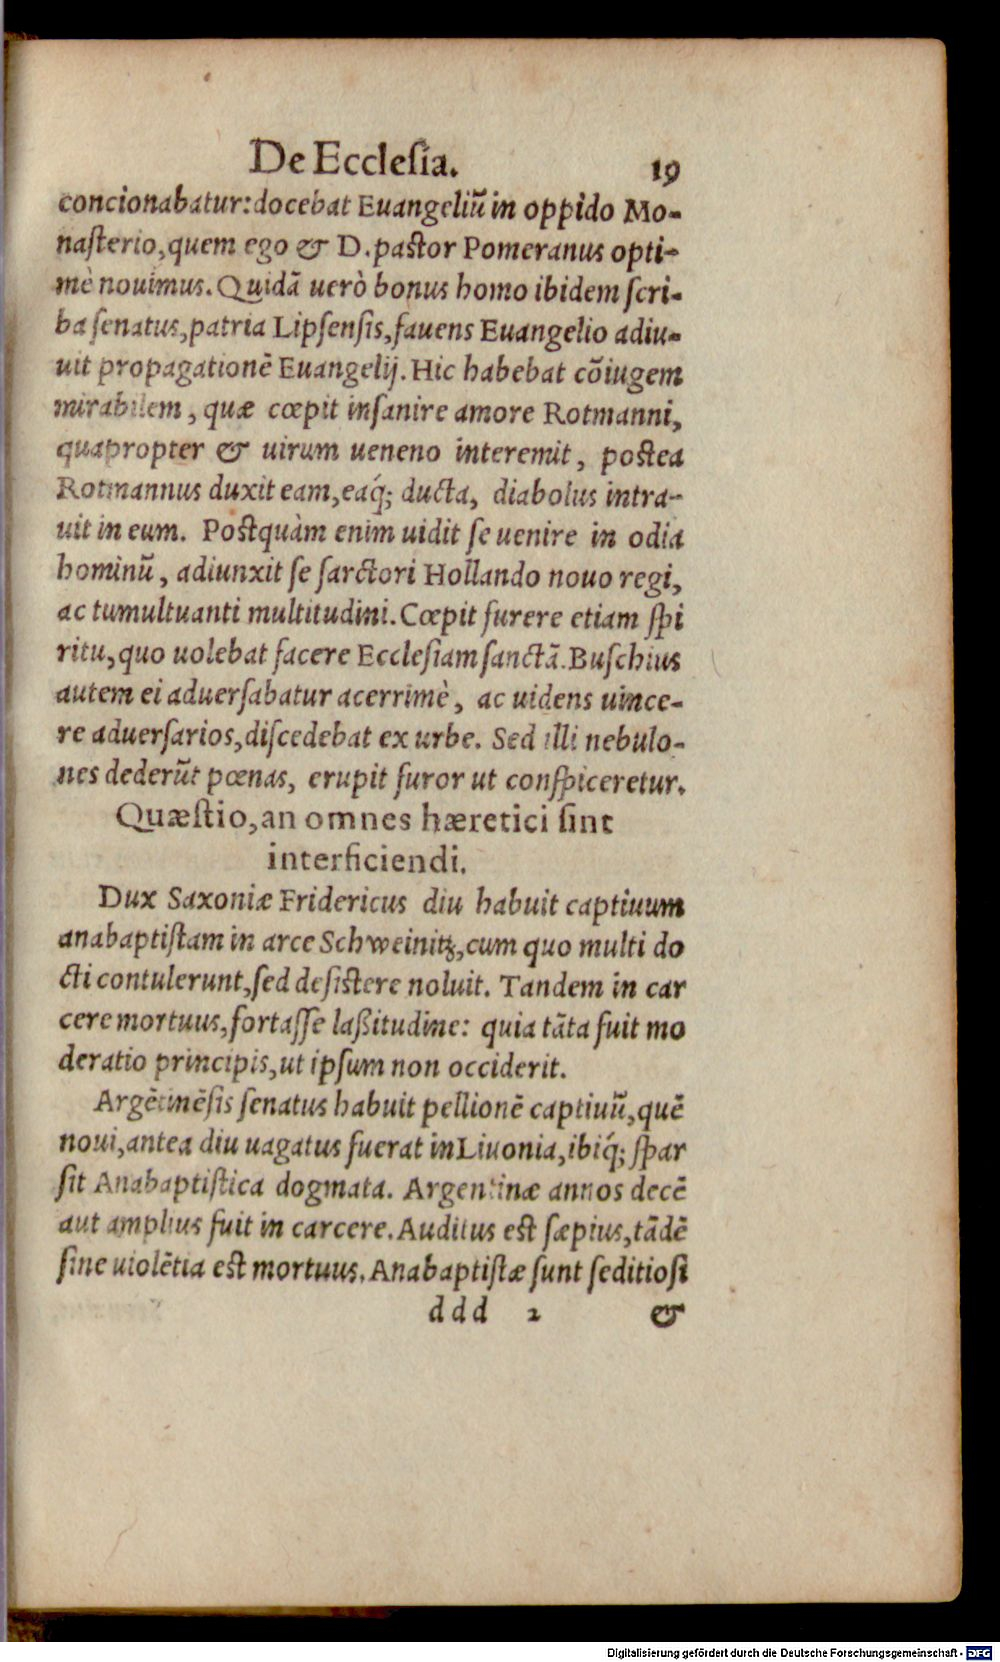 De Ecclesia. 19
concionabatur: docebat Euangeliũ in oppido Mo-
nasterio, quem ego & D. pastor Pomeranus opti-
mè nouimus. Quidã uerò bonus homo ibidem scri-
ba senatus, patria Lipsensis, fauens Euangelio adiu-
uit propagationẽ Euangelij. Hic habebat cõiugem
mirabilem, quæ cœpit insanire amore Rotmanni,
quapropter & uirum ueneno interemit, postea
Rotmannus duxit eam, eaq́; ducta, diabolus intra-
uit in eum. Postquàm enim uidit se uenire in odia
hominũ, adiunxit se sarctori Hollando nouo regi,
ac tumultuanti multitudini. Cœpit furere etiam spi
ritu, quo uolebat facere Ecclesiam sanctã. Buschius
autem ei aduersabatur acerrimè, ac uidens uince-
re aduersarios, discedebat ex urbe. Sed illi nebulo-
nes dederũt pœnas, erupit furor ut conspiceretur.
Quæstio, an omnes hæretici sint
interficiendi.
Dux Saxoniæ Fridericus diu habuit captiuum
anabaptistam in arce Schweinitz, cum quo multi do
cti contulerunt, sed desistere noluit. Tandem in car
cere mortuus, fortasse laßitudine: quia tãta fuit mo
deratio principis, ut ipsum non occiderit.
Argẽtinẽsis senatus habuit pellionẽ captiuũ, quẽ
noui, antea diu uagatus fuerat in Liuonia, ibiq́; spar
sit Anabaptistica dogmata. Argentinæ annos decẽ
aut amplius fuit in carcere. Auditus est sæpius, tãdẽ
sine uiolẽtia est mortuus. Anabaptistæ sunt seditiosi
ddd 2 &
Digitalisierung gefördert durch die Deutsche Forschungsgemeinschaft - DFG